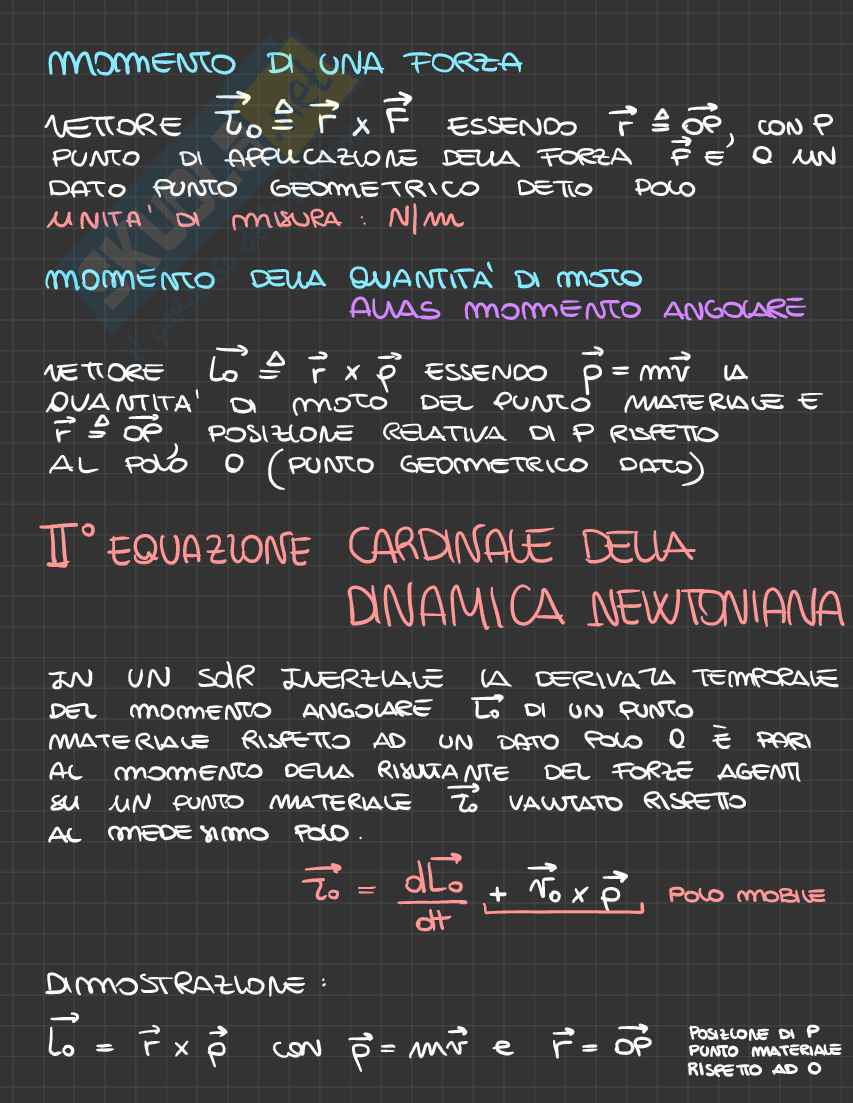 MOMENTO DI UNA FORZA
VETTORE τ₀ ≜ r × F ESSENDO r ≜ OP, CON P
PUNTO DI APPLICAZIONE DELLA FORZA F E' O UN
DATO PUNTO GEOMETRICO DETTO POLO
UNITA' DI MISURA : N/m
MOMENTO DELLA QUANTITA' DI MOTO
ALIAS MOMENTO ANGOLARE
VETTORE L₀ ≜ r × p ESSENDO p = mv LA
QUANTITA' DI MOTO DEL PUNTO MATERIALE E
r ≜ OP, POSIZIONE RELATIVA DI P RISPETTO
AL POLO O (PUNTO GEOMETRICO DATO)
II° EQUAZIONE CARDINALE DELLA
DINAMICA NEWTONIANA
IN UN SdR INERZIALE LA DERIVATA TEMPORALE
DEL MOMENTO ANGOLARE L₀ DI UN PUNTO
MATERIALE RISPETTO AD UN DATO POLO O È PARI
AL MOMENTO DELLA RISULTANTE DEL FORZE AGENTI
SU UN PUNTO MATERIALE τ₀ VALUTATO RISPETTO
AL MEDESIMO POLO.
τ₀ = dL₀/dt + v₀ × p POLO MOBILE
DIMOSTRAZIONE :
L₀ = r × p con p = mv e r = OP POSIZIONE DI P
PUNTO MATERIALE
RISPETTO AD O